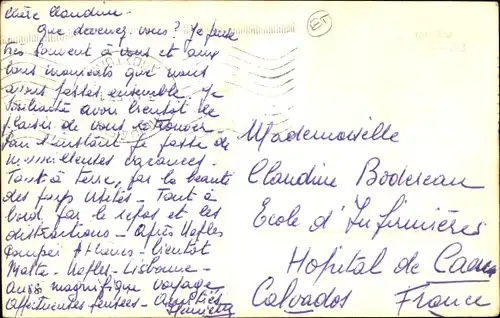 Chère Claudine -
Que devenez-vous? Je pense
très souvent à vous et aux
bons moments que nous
avons passés ensemble. Je
souhaite avoir bientôt le
plaisir de vous retrouver -
Pour l'instant je passe de
merveilleuses vacances -
Tant à terre, par la beauté
des pays visités - Tant à
bord, par le repos et les
distractions - Après Naples
Pompéi Athènes - bientôt
Malte - Naples - Lisbonne -
Aussi magnifique voyage
Affectueuses pensées - Amitiés
Mademoiselle
Claudine Bodereau
Ecole d'Infirmières
Hôpital de Caen
Calvados France